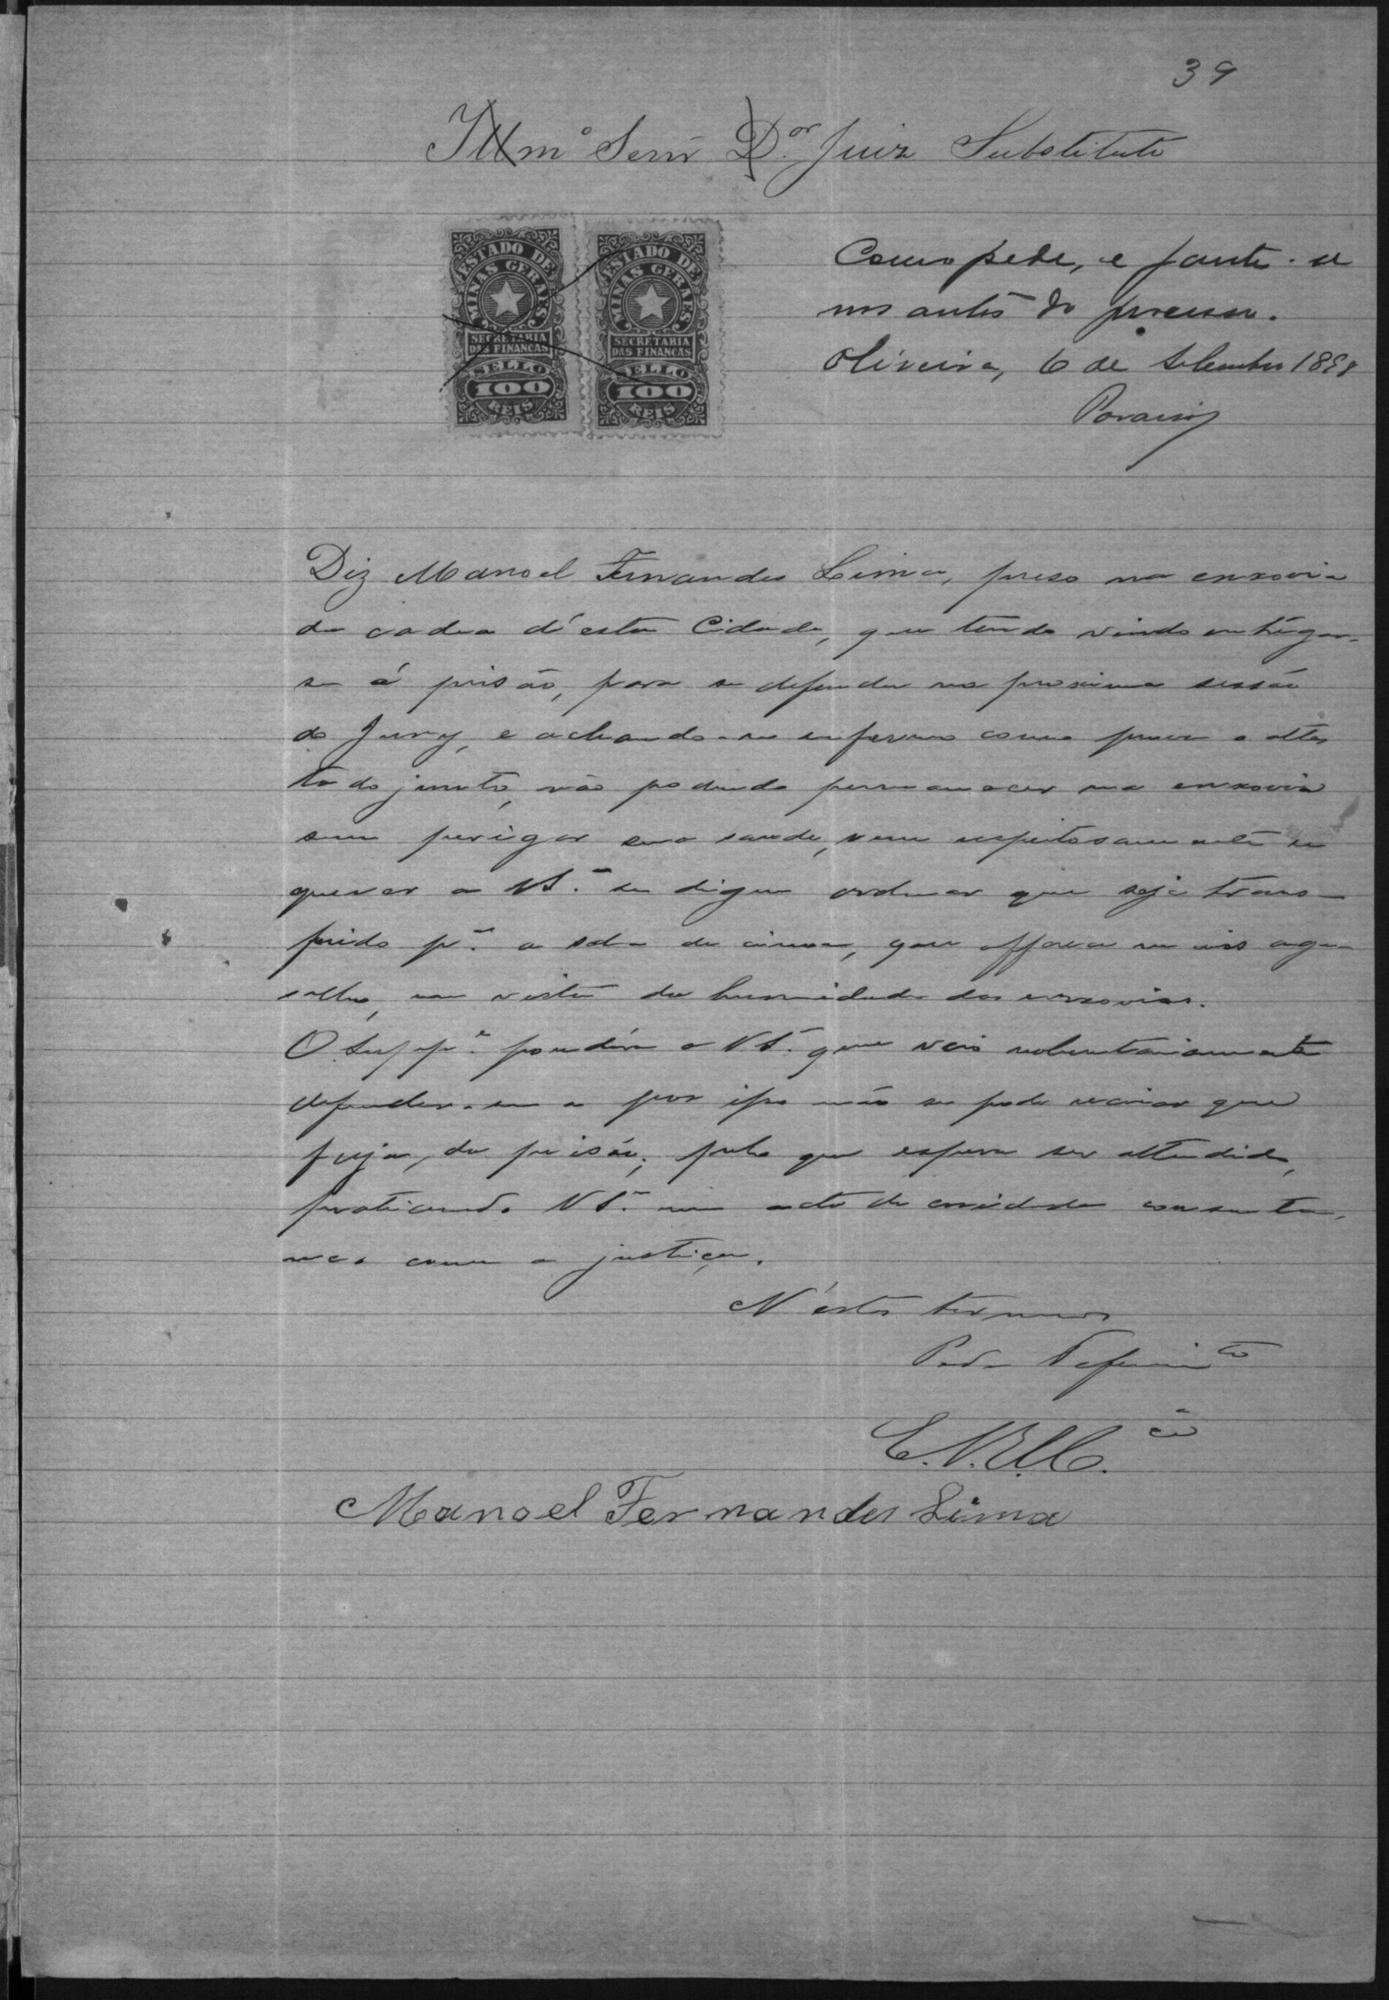 39
Illmº Senr Dor. Juiz Substituto
ESTADO DE MINAS GERAES
SECRETARIA DAS FINANCAS
SELLO
100
REIS
ESTADO DE MINAS GERAES
SECRETARIA DAS FINANCAS
SELLO
100
REIS
Como pede, e junte-se
nos autos do processo.
Oliveira, 6 de Setembro 1898
Diz Manoel Fernandes Lima, preso na enxovia
da cadea d'esta Cidade, que tendo vindo entregar-
se á prisão, para se defender na proxima sessão
do Jury, e achando-se enfermo como prova o attes
tado junto, não podendo permanecer na enxovia
sem perigar sua saude, vem respeitosamente re
querer a VSª. se digne ordenar que seja trans-
ferido pª. a sala de cima, que offerece mais aga-
salho, em vista da humidade das enxovias.
O Suppe. pondéra a VSª. que veio voluntariamente
defender-se e por isso não se pode recear que
fuja da prisão; pelo que espera ser attendido,
praticando VSª. um acto de caridade consenta-
neo com a justiça.
N'estes termos
Pede Deferimto
E.R.Mce.
Manoel Fernandes Lima